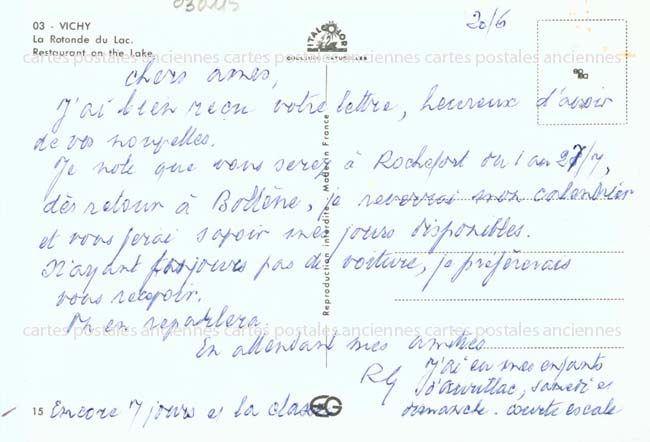 030115
20/6
03 - VICHY
La Rotonde du Lac.
Restaurant on the Lake.
ITALCOLOR
COULEURS NATURELLES
Chers amis,
J'ai bien reçu votre lettre, heureux d'avoir
de vos nouvelles.
Je note que vous serez à Rochefort du 1 au 27/7,
dès retour à Bollène, je reverrai mon calendrier
et vous ferai savoir mes jours disponibles.
N'ayant toujours pas de voiture, je préférerais
vous recevoir.
On en reparlera.
En attendant mes amitiés
RG
J'ai eu mes enfants
d'Aurillac, samedi et
dimanche. courte escale
15
Encore 7 jours et la classe
EG
Reproduction interdite - Made in France
cartes postales anciennes cartes postales anciennes cartes postales anciennes
cartes postales anciennes cartes postales anciennes cartes postales anciennes